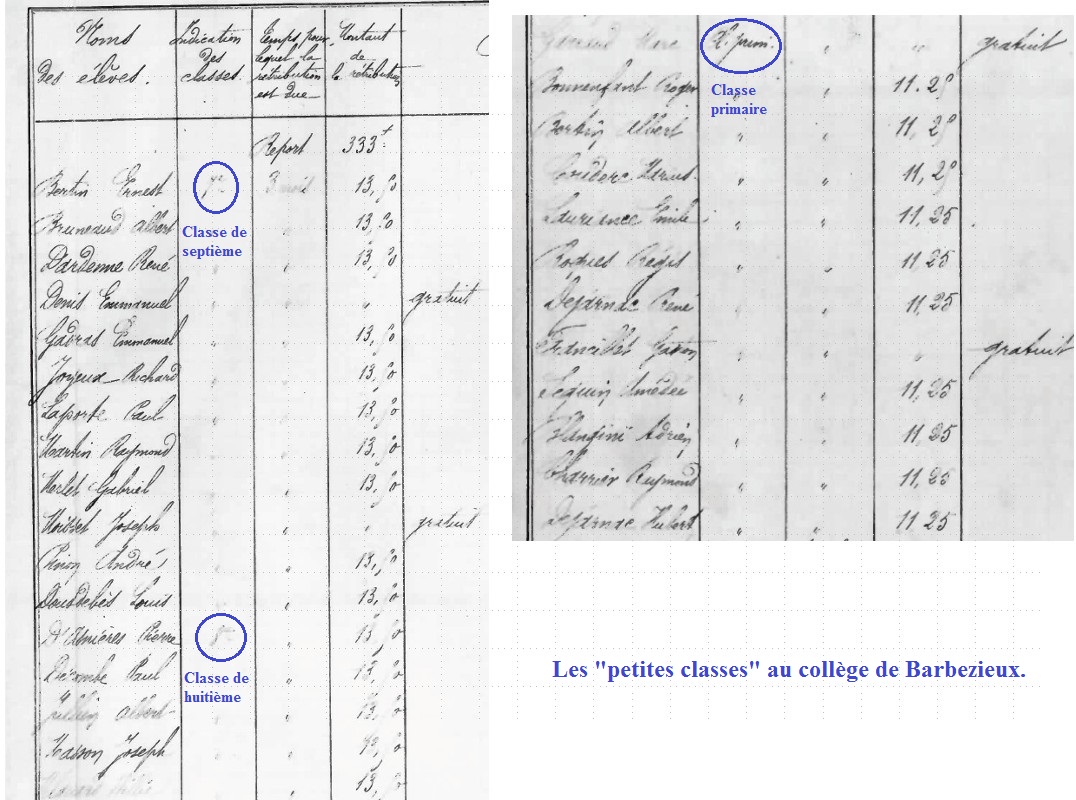 Noms des élèves.
Indication des classes.
Temps pour lequel la rétribution est due
Montant de la rétribution
Report 333
Bertin Ernest 7e 3 mois 13,50
Classe de septième
Bruneaud Albert " 13,50
Dardenne René " 13,50
Denis Emmanuel " " gratuit
Gadras Emmanuel " 13,50
Joyeux Richard " 13,50
Laporte Paul " 13,50
Martin Raymond " 13,50
Merlet Gabriel " 13,50
Joseph " " gratuit
Pinon André " 13,50
Dousdebès Louis " 13,50
D'Asnières Pierre 8e " 13,50
Classe de huitième
Décombe Paul " 13,50
Albert " 13,50
Masson Joseph " 13,50
13,50
Cl. prim. " " gratuit
Classe primaire
Bonnenfant Roger " " 11.25
Bertin Albert " " 11,25
" " 11,25
Laurience Emile " " 11,25
Roques Régis " " 11,25
Dejarnac René " " 11,25
" " " gratuit
Seguin Amédée " " 11,25
Adrien " " 11,25
Charrier Raymond " " 11,25
Dejarnac Hubert " " 11 25
Les "petites classes" au collège de Barbezieux.